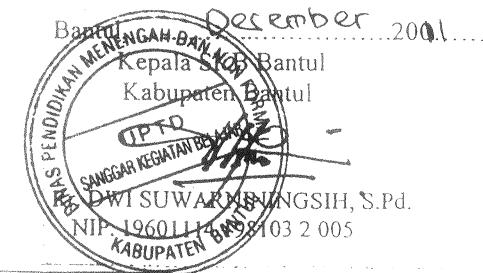 Bantul, December 2001
Kepala SKB Bantul
Kabupaten Bantul
DINAS PENDIDIKAN MENENGAH DAN NON FORMAL
UPTD
SANGGAR KEGIATAN BELAJAR
KABUPATEN BANTUL
DWI SUWARNININGSIH, S.Pd.
NIP. 19601114 198103 2 005